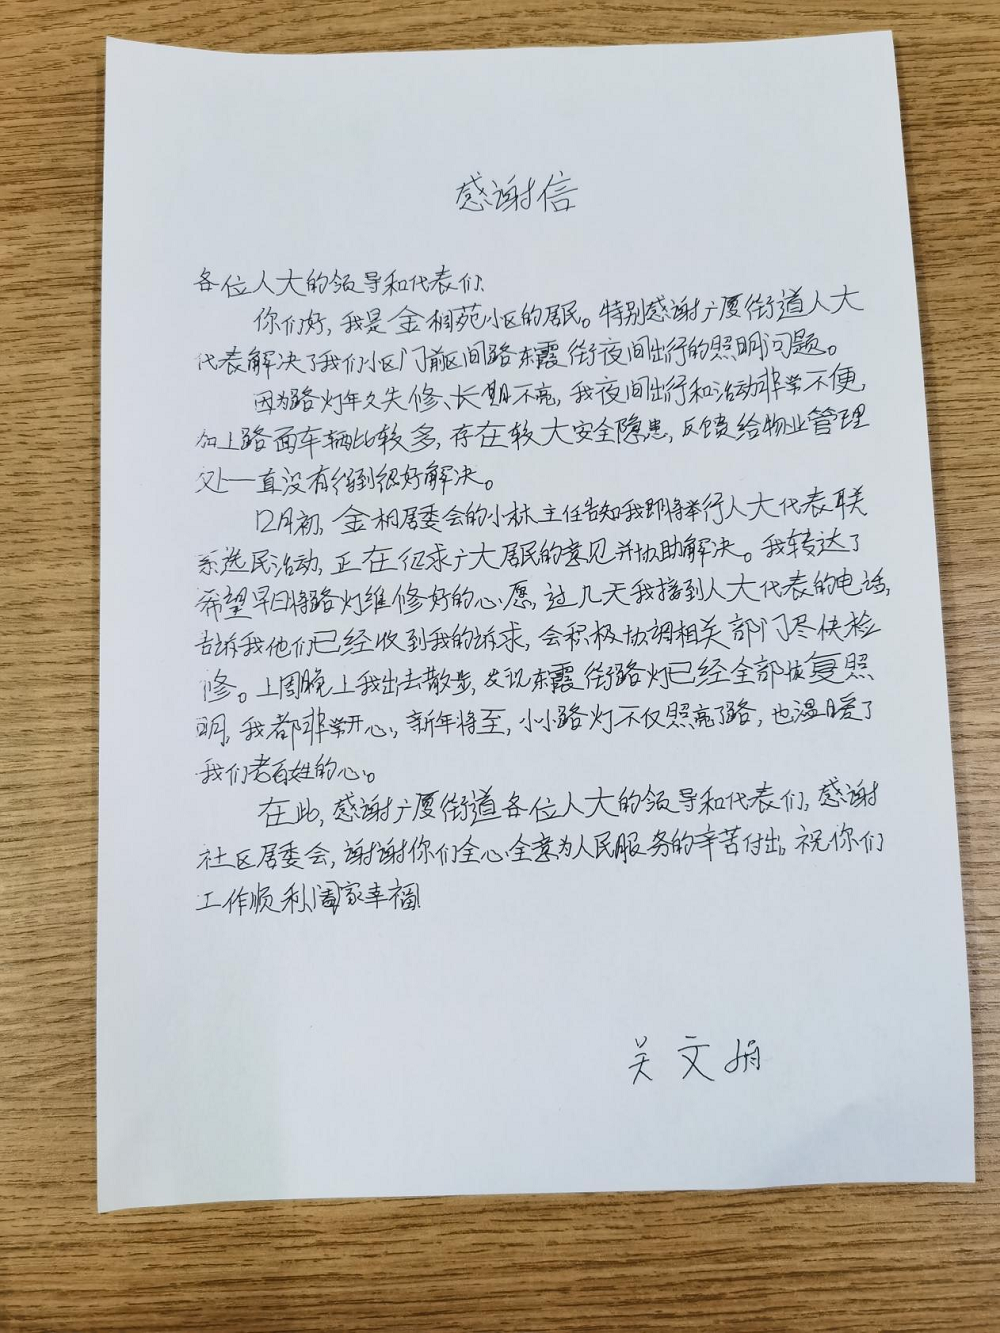 感谢信
各位人大的领导和代表们:
你们好,我是金桐苑小区的居民。特别感谢广厦街道人大
代表解决了我们小区门前区间路东霞街夜间出行的照明问题。
因为路灯年久失修、长期不亮,我夜间出行和活动非常不便,
加上路面车辆比较多,存在较大安全隐患,反馈给物业管理
处一直没有得到很好解决。
12月初,金桐居委会的小林主任告知我即将举行人大代表联
系选民活动,正在征求广大居民的意见并协助解决。我转达了
希望早日将路灯维修好的心愿,过几天我接到人大代表的电话,
告诉我他们已经收到我的诉求,会积极协调相关部门尽快检
修。上周晚上我出去散步,发现东霞街路灯已经全部恢复照
明,我都非常开心,新年将至,小小路灯不仅照亮了路,也温暖了
我们老百姓的心。
在此,感谢广厦街道各位人大的领导和代表们,感谢
社区居委会,谢谢你们全心全意为人民服务的辛苦付出。祝你们
工作顺利,阖家幸福!
关文娟